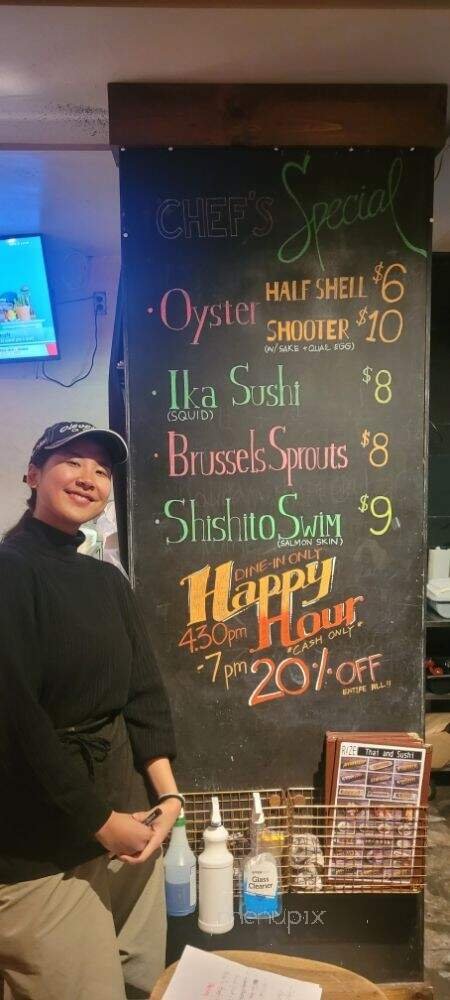 CHEF'S Special
• Oyster HALF SHELL $6
SHOOTER $10
(W/ SAKE + QUAIL EGG)
• Ika Sushi $8
(SQUID)
• Brussels Sprouts $8
• Shishito Swim $9
(SALMON SKIN)
DINE-IN ONLY
Happy
Hour
4:30pm
-7pm
*CASH ONLY*
20% OFF
ENTIRE BILL!!
RIZE Thai and Sushi
Glass
Cleaner
menupix